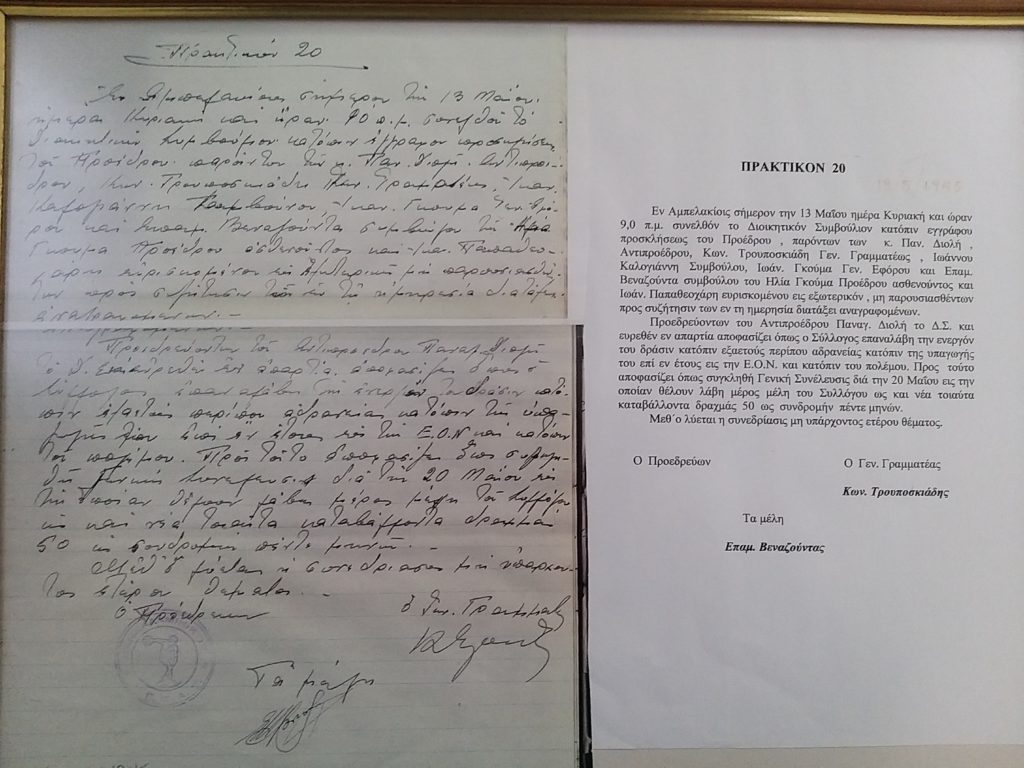 Πρακτικόν 20
Εν Αμπελακίοις σήμερον την 13 Μαΐου
ημέραν Κυριακή και ώραν π.μ. συνελθόν το
Διοικητικόν Συμβούλιον κατόπιν εγγράφου προσκλήσεως
του Προέδρου παρόντων των κ. Παν. Διολή Αντιπροέ-
δρου, Κων. Τρουποσκιάδη Γεν. Γραμματέως, Ιωαν.
Καλογιάννη Συμβούλου Ιωαν. Γκουμα Γεν. Εφό-
ρου και Επαμ. Βεναζούντα συμβούλου του Ηλία
Γκουμα Προέδρου ασθενούντος και Ιω. Παπαθεο-
χάρη ευρισκομένου εις εξωτερικόν μη παρουσιασθέν-
των προς συζήτησιν των εν τη ημερησία διατάξει
αναγραφομένων.-
Προεδρεύοντος του Αντιπροέδρου Παναγ. Διολή
το Δ.Σ. και ευρεθέν εν απαρτία αποφασίζει όπως ο
Σύλλογος επαναλάβη την ενεργόν του δράσιν κατό-
πιν εξαετούς περίπου αδρανείας κατόπιν της υπα-
γωγής του επί εν έτος εις την Ε.Ο.Ν και κατόπιν
του πολέμου. Προς τούτο αποφασίζει όπως συγκλη-
θή Γενική Συνέλευσις διά την 20 Μαΐου εις
την οποίαν θέλουν λάβη μέρος μέλη του Συλλόγου
ως και νέα τοιαύτα καταβάλλοντα δραχμάς
50 ως συνδρομήν πέντε μηνών.-
Μεθ' ο λύεται η συνεδρίασις μη υπάρχον-
τος ετέρου θέματος.-
Ο Προεδρεύων
ο Γεν. Γραμματεύς
Τα μέλη
ΠΡΑΚΤΙΚΟΝ 20
Εν Αμπελακίοις σήμερον την 13 Μαΐου ημέρα Κυριακή και ώραν
9,0 π.μ. συνελθόν το Διοικητικόν Συμβούλιον κατόπιν εγγράφου
προσκλήσεως του Προέδρου , παρόντων των κ. Παν. Διολή ,
Αντιπροέδρου, Κων. Τρουποσκιάδη Γεν. Γραμματέως , Ιωάννου
Καλογιάννη Συμβούλου, Ιωάν. Γκούμα Γεν. Εφόρου και Επαμ.
Βεναζούντα συμβούλου του Ηλία Γκούμα Προέδρου ασθενούντος και
Ιωάν. Παπαθεοχάρη ευρισκομένου εις εξωτερικόν , μη παρουσιασθέντων
προς συζήτησιν των εν τη ημερησία διατάξει αναγραφομένων.
Προεδρεύοντων του Αντιπροέδρου Παναγ. Διολή το Δ.Σ. και
ευρεθέν εν απαρτία αποφασίζει όπως ο Σύλλογος επαναλάβη την ενεργόν
του δράσιν κατόπιν εξαετούς περίπου αδρανείας κατόπιν της υπαγωγής
του επί εν έτους εις την Ε.Ο.Ν. και κατόπιν του πολέμου. Προς τούτο
αποφασίζει όπως συγκληθή Γενική Συνέλευσις διά την 20 Μαΐου εις την
οποίαν θέλουν λάβη μέρος μέλη του Συλλόγου ως και νέα τοιαύτα
καταβάλλοντα δραχμάς 50 ως συνδρομήν πέντε μηνών.
Μεθ΄ο λύεται η συνεδρίασις μη υπάρχοντος ετέρου θέματος.
Ο Προεδρεύων
Ο Γεν. Γραμματέας
Κων. Τρουποσκιάδης
Τα μέλη
Επαμ. Βεναζούντας